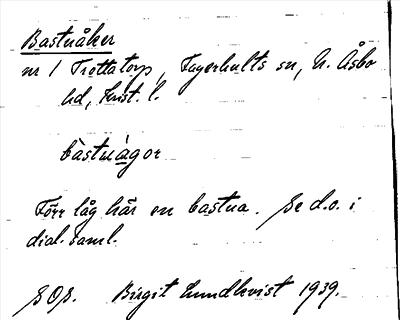 Bastuåker
nr 1 Trottatorp, Fagerhults sn, N. Åsbo
hd, Krist. l.
bàstuágor
Förr låg här en bastua. Se d.o. i
dial. saml.
SOS. Birgit Lundkvist 1939.